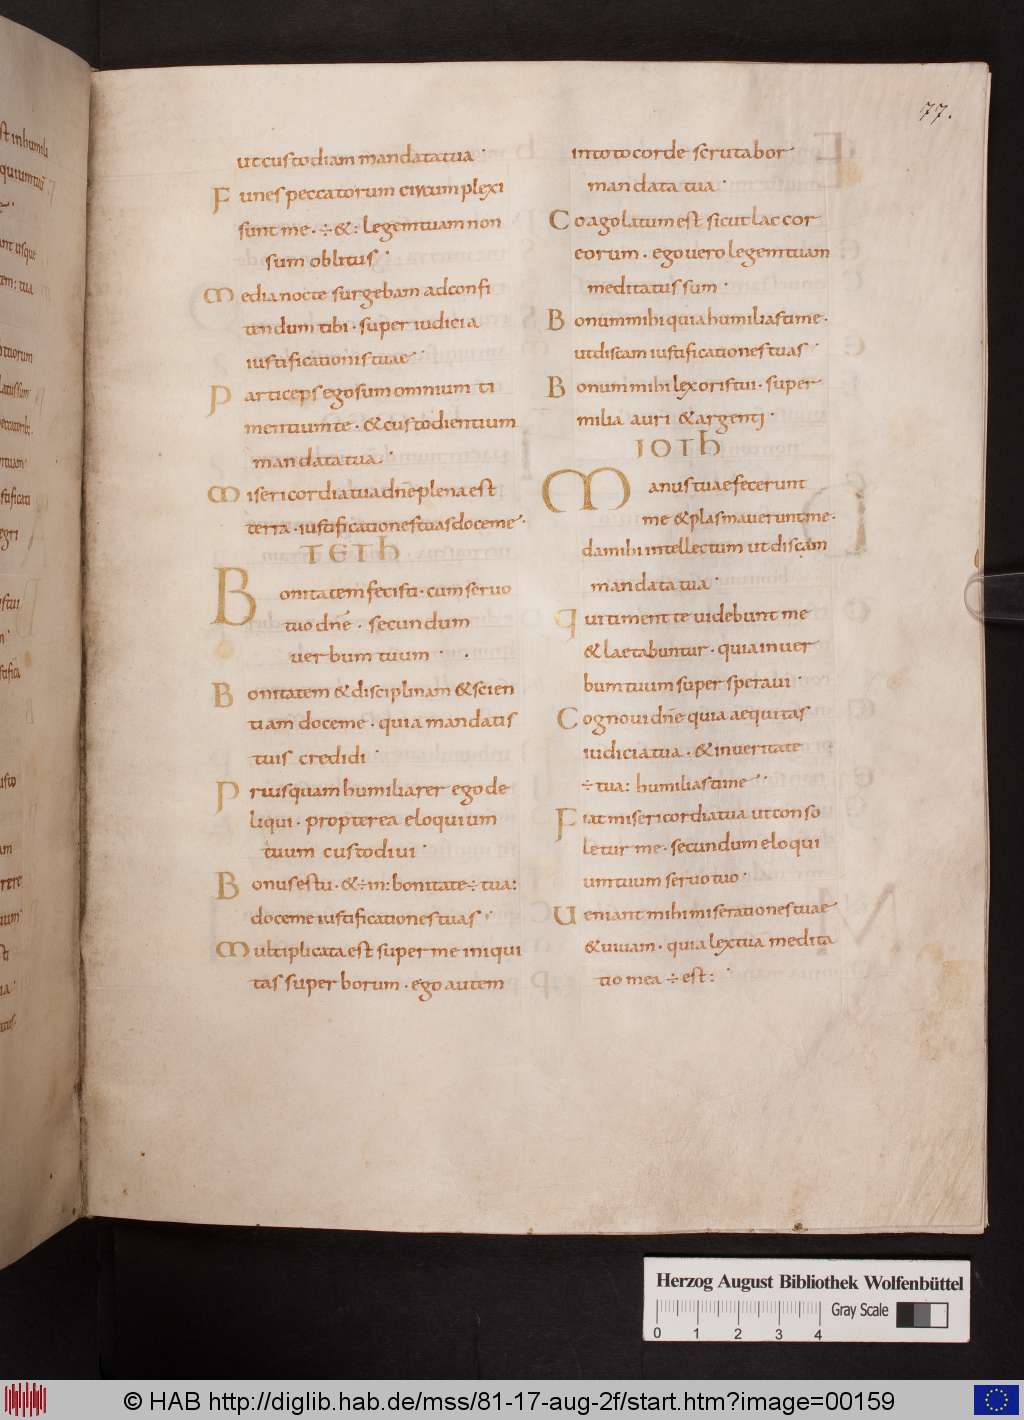 77.
ut custodiam mandata tua
Funes peccatorum circumplexi
sunt me · ÷ &: legem tuam non
sum oblitus
Media nocte surgebam ad confi
tendum tibi · super iudicia
iustificationis tuae
Particeps ego sum omnium ti
mentium te · & custodientium
mandata tua
Misericordia tua dn̄e plena est
terra · iustificationes tuas doce me
TETH
Bonitatem fecisti · cum servo
tuo dn̄e · secundum
verbum tuum
Bonitatem & disciplinam & scien
tiam doce me · quia mandatis
tuis credidi
Priusquam humiliarer ego de
liqui · propterea eloquium
tuum custodivi
Bonus es tu · & ÷ in: bonitate ÷ tua:
doce me iustificationes tuas
Multiplicata est super me iniqui
tas superborum · ego autem
in toto corde scrutabor
mandata tua
Coagolatum est sicut lac cor
eorum · ego vero legem tuam
meditatus sum
Bonum mihi quia humiliasti me ·
ut discam iustificationes tuas
Bonum mihi lex oris tui · super
milia auri & argenti
IOTH
Manus tuae fecerunt
me & plasmaverunt me ·
da mihi intellectum ut discam
mandata tua
Qui timent te videbunt me
& laetabuntur · quia in ver
bum tuum super speravi
Cognovi dn̄e quia aequitas
iudicia tua · & in veritate
÷ tua: humiliasti me
Fiat misericordia tua ut conso
letur me · secundum eloqui
um tuum servo tuo
Veniant mihi miserationes tuae
& vivam · quia lex tua medita
tio mea ÷ est:
Herzog August Bibliothek Wolfenbüttel
Gray Scale
0 1 2 3 4
© HAB http://diglib.hab.de/mss/81-17-aug-2f/start.htm?image=00159